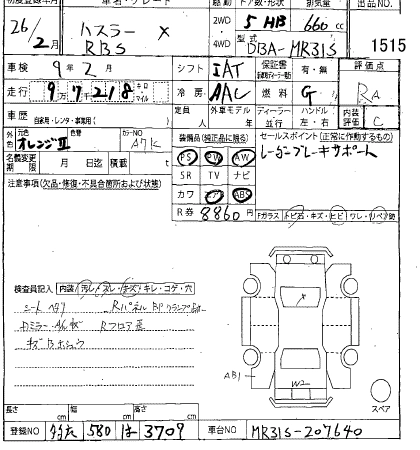 車名・グレード 駆動 ドア・形状 排気量 出品NO.
26/2月 ハスラー X 2WD 5 HB 660 cc
RBS 4WD 型式 DBA-MR31S 1515
車検 9年2月 シフト IAT 保証書 有・無 評価点
走行 9万7千218 キロ マイル 冷房 AAC 燃料 G RA
車歴 自家用・レンタ・事業用( ) 定員 外車モデル 年 ディーラー 並行 ハンドル 左・右 内装評価 C
外色 元色 オレンジII 色替 カラーNO A7K 装備品(純正品に限る) セールスポイント(正常に作動するもの)
名義変更期限 月 日迄 積載 t PS PW AW レーダーブレーキサポート
注意事項(欠品・修復・不具合箇所および状態) SR TV ナビ
カワ エアB ABS
R券 8860円 Fガラス トビ石・キズ・ヒビ ワレ・リペア跡
検査員記入 内装 汚レ・スレ・キズ・キレ・コゲ・穴
シートヘタリ RパネルBPクランプ跡
Rフロア歪
キズBホシュウ
AB1
W2
スペア
長さ cm 幅 cm 高さ cm
登録NO 580 は 3709 車台NO MR31S-207640